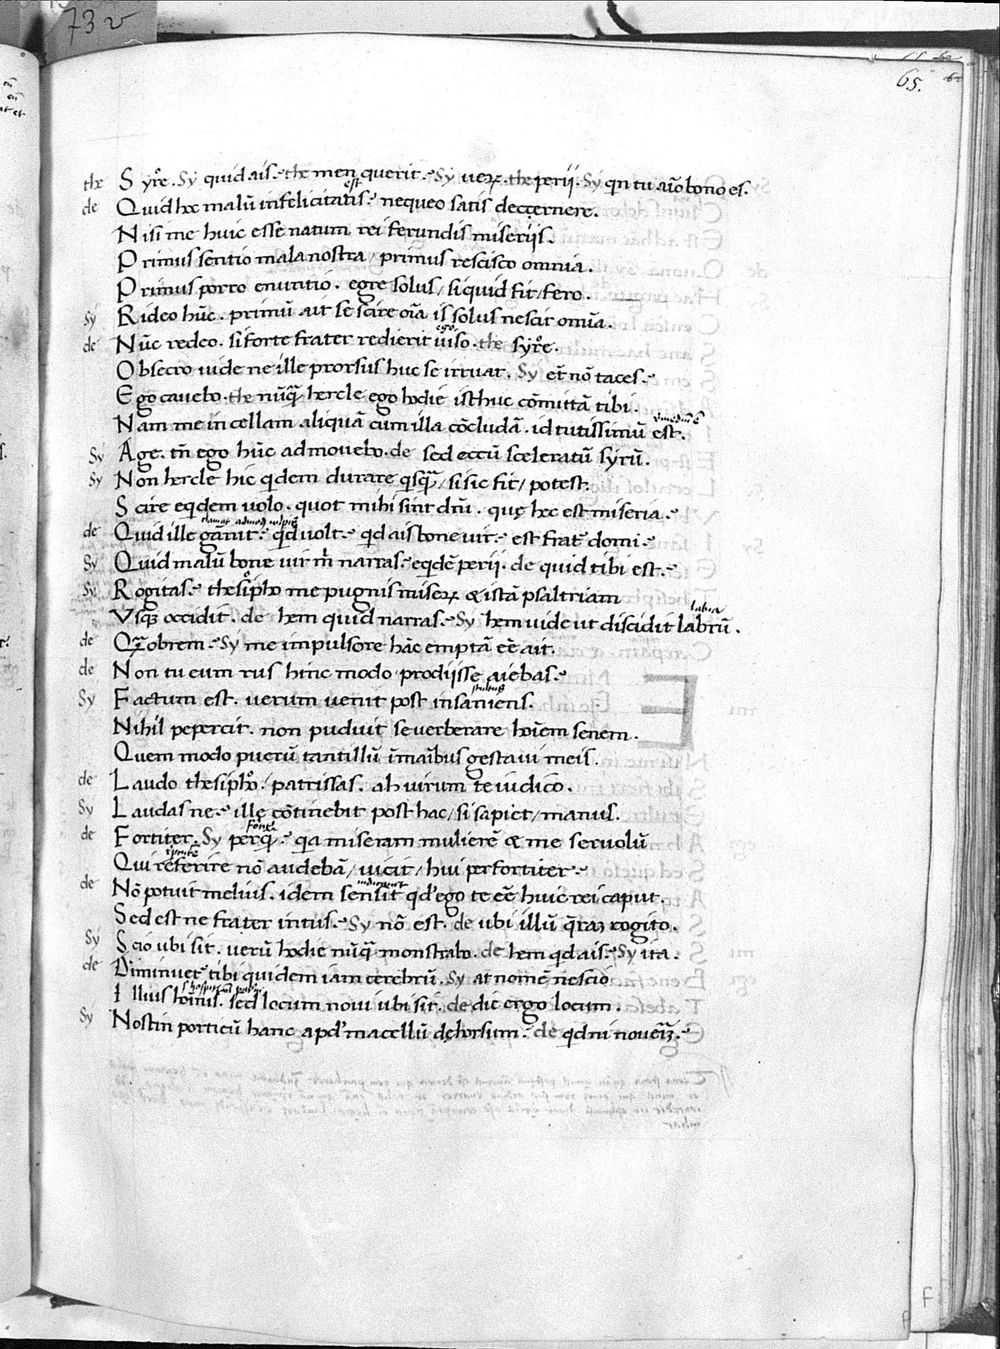 73 v
65.
the Syre. Sy quid ais. the men querit. Sy verꝝ. the perii. Sy qn tu aīo bono es.
est
de Quid hoc malū infelicitatis. nequeo satis decernere.
Nisi me huic esse natum rei ferundis miseriis.
Primus sentio mala nostra / primus rescisco omnia.
Primus porro enuntio. egre solus / siquid fit / fero.
Sy Rideo hūc. primū ait se scire oīa is solus nescit omīa.
ego
de Nūc redeo. si forte frater redierit viso. the syre.
Obsecro vide ne ille prorsus huc se irruat. Sy et nō taces.
Ego cavebo. the nūq̄ hercle ego hodie isthuc cōmittā tibi.
Nam me in cellam aliquā cum illa cōcludā. id tutissimū est.
Sy Age. tn̄ ego hūc admovebo. de sed eccū sceleratū syrū.
Sy Non hercle hic qdem durare qsq̄ / si sic fit / potest.
Scire eqdem volo. quot mihi sint dn̄i. quę hec est miseria.
de Quid ille gannit. qd volt. qd ais bone vir. est frat̄ domi.
Sy Quid malū bone vir m̄ narras. eqdē perii. de quid tibi est.
Sy Rogitas. thesipho me pugnis miseꝝ & istā psaltriam
labia
Usq̄ occidit. de hem quid narras. Sy hem vide ut discidit labrū.
de Qᷓobrem. Sy me impulsore hāc emptā eē ait.
de Non tu eum rus hinc modo prodiisse aiebas.
stultus
Sy Factum est. verum venit post insaniens.
Nihil pepercit. non puduit se verberare hoīem senem.
Quem modo puerū tantillū ī maībus gestavi meis.
de Laudo thesipho. / patrissas. ah virum te iudico.
Sy Laudas ne. ille cōtinebit post hac / si sapiet / manus.
de Fortiter. Sy perq̄. qa miseram mulierē & me servolū
Qui referire nō audebā / vicit / hui perfortiter.
de Nō potuit melius. idem sensit qd ego te eē huic rei caput.
Sed est ne frater intus. Sy nō est. de ubi illū q̄raꝫ cogito.
Sy Scio ubi sit. verū hodie nūq̄ monstrabo. de hem qd ais. Sy ita.
de Diminuet̄ tibi quidem iam cerebrū. Sy at nomē nescio
Illius hoīnis. sed locum novi ubi sit. de dic ergo locum.
Sy Nostin porticū hanc apd macellū deorsum. de qd ni noverī.
F